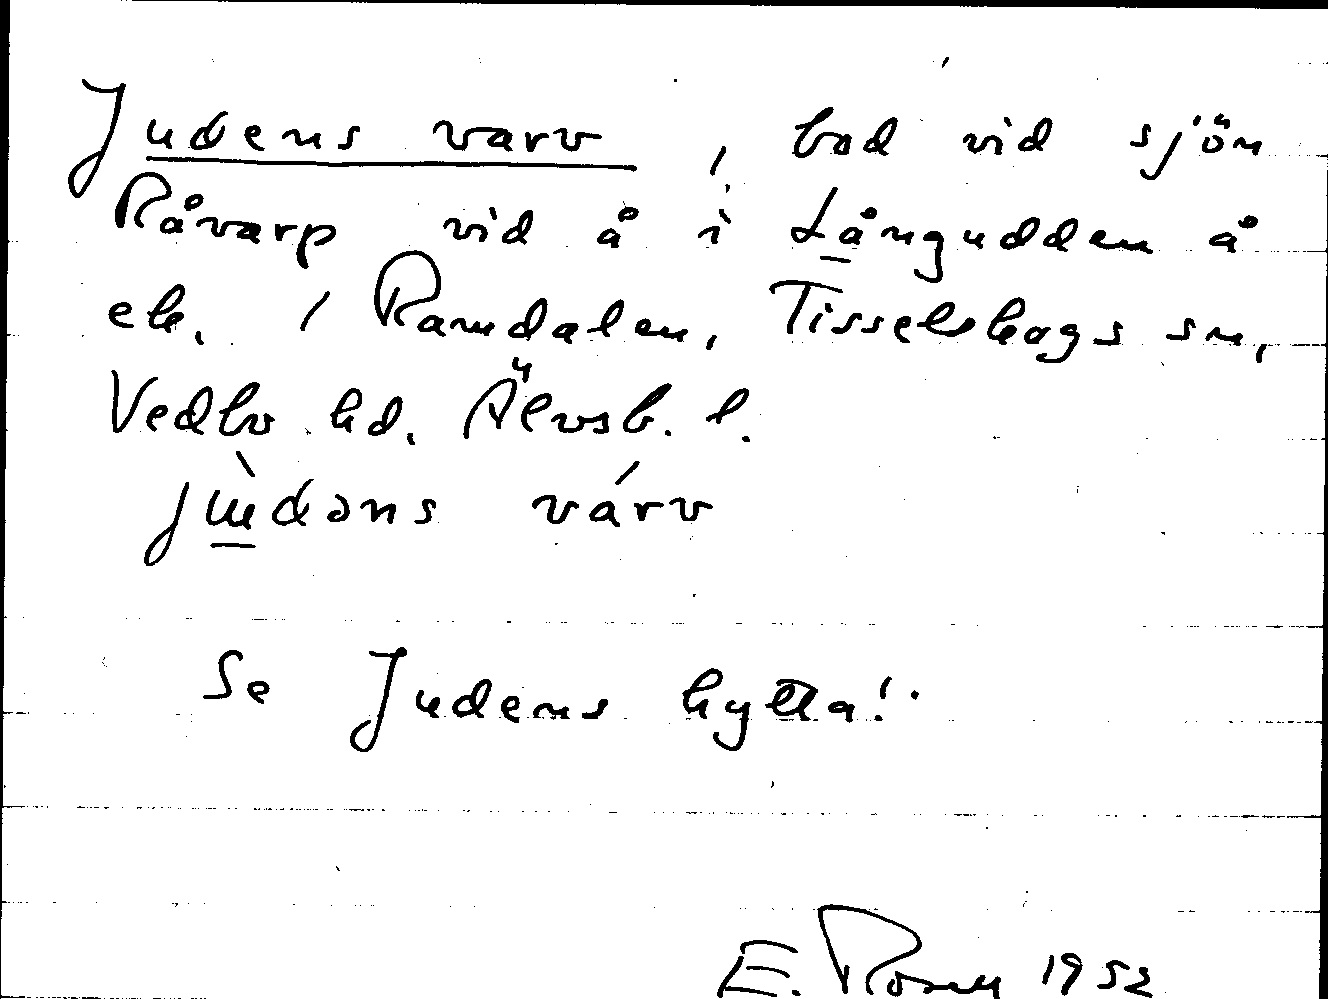 Judens varv, bad vid sjön
Råvarp vid å i Långudden å
ek. 1 Ramdalen, Tisselskogs sn,
Vedbo hd. Älvsb. l.
jùdəns várv
Se Judens hytta!
E. Rosell 1952